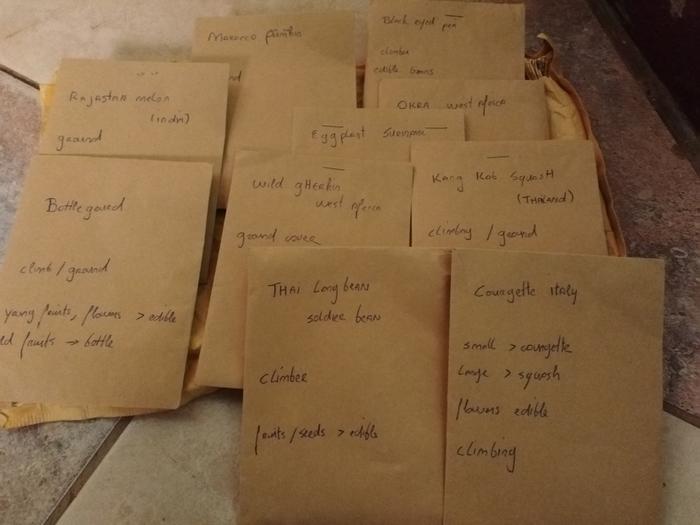 Marocco pumkin
Black eyed pea
climber
edible beans
Rajastan melon
(India)
ground
OKRA west Africa
Eggplant Suriname
Wild gherkin
west Africa
ground cover
Kang Kob Squash
(THAILAND)
climbing / ground
Bottle gourd
climb / ground
yang fruits, flowers > edible
fruits → bottle
THAI Long bean
soldier bean
climber
fruits / seeds > edible
Courgette italy
small > courgette
Large > squash
flowers edible
climbing